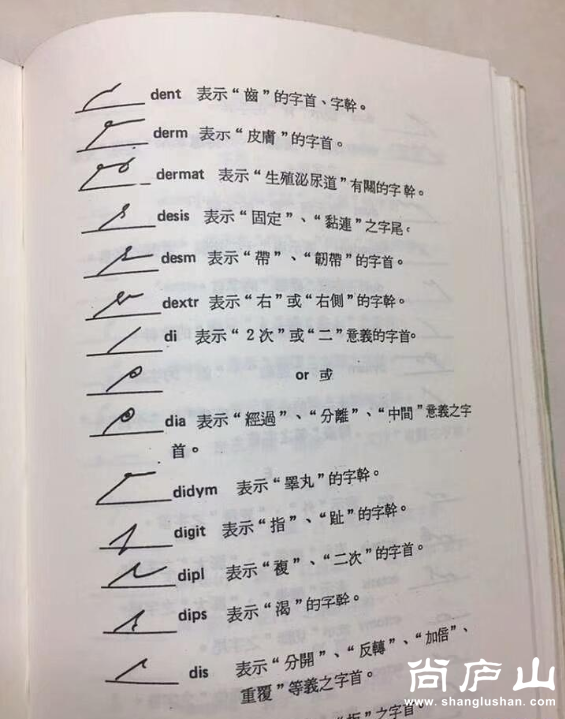 dent 表示“齒”的字首、字幹。
derm 表示“皮膚”的字首。
dermat 表示“生殖泌尿道”有關的字幹。
desis 表示“固定”、“黏連”之字尾。
desm 表示“帶”、“韌帶”的字首。
dextr 表示“右”或“右側”的字幹。
di 表示“2次”或“二”意義的字首。
or 或
dia 表示“經過”、“分離”、“中間”意義之字
首。
didym 表示“睪丸”的字幹。
digit 表示“指”、“趾”的字幹。
dipl 表示“複”、“二次”的字首。
dips 表示“渴”的字幹。
dis 表示“分開”、“反轉”、“加倍”、
重覆”等義之字首。
“指”之字首。
尚庐山
www.shanglushan.com